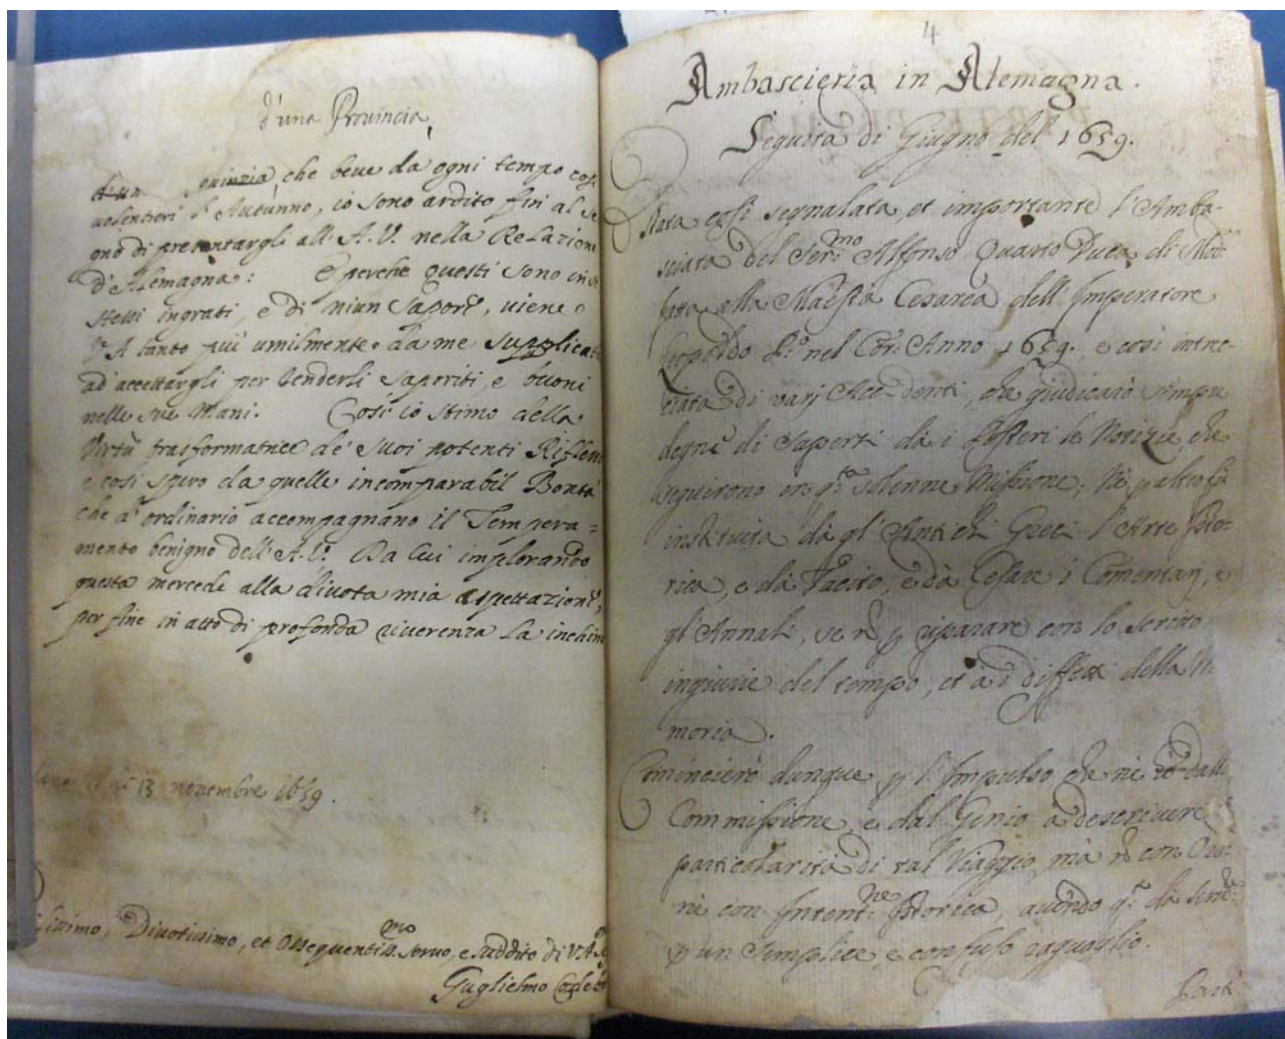 d'una Provincia,
che beve da ogni tempo così
volentieri l'Autunno, io sono ardito fin al se
gno di presentargli all'A.V. nella Relazione
d'Alemagna: E perche questi sono in se
stessi ingrati, e di niun sapore, viene
V.A tanto più umilmente da me supplicata
ad accettargli per renderli saporiti, e buoni
nelle sue Mani. Così io stimo della
Virtù trasformatrice de' suoi potenti Riflessi
e così spero da quelle incomparabil Bontà
che a' ordinario accompagnano il Tempera=
mento benigno dell'A.V. Da Cui implorando
questa mercede alla divota mia aspettazione,
per fine in atto di profonda riverenza La inchino
13 novembre 1659.
Divotissimo, et Ossequentiss.mo servo, e suddito di V.A.
Guglielmo
4
Ambascieria in Alemagna.
Seguita di Giugno del 1659.
Stata così segnalata, et importante l'Amba-
sciata del Ser.mo Alfonso Quarto Duca di Mod.
fatta alla Maestà Cesarea dell'Imperatore
Leopoldo P.o nel Cor. Anno 1659. e così intre-
ciata di varj Accidenti, che giudicarò sempre
degne di sapersi da i Posteri le Notizie, che
seguirono in q.ta solenne Missione; Nè p altro fù
instituita da gl'Antichi Greci l'Arte Isto-
rica, e da Tacito, e da Cesare i Comentarj, e
gl'Annali, se n p riparare con lo scritto
ingiurie del tempo, et à i diffetti della Me
moria.
Comincierò dunque p l'Impulso che ne hò dalla
Commissione, e dal Genio a descrivere
particolarità di tal Viaggio, mà n con
nè con Intent.ne Istorica, avendo q. da
p un semplice, e confuso raguaglio.